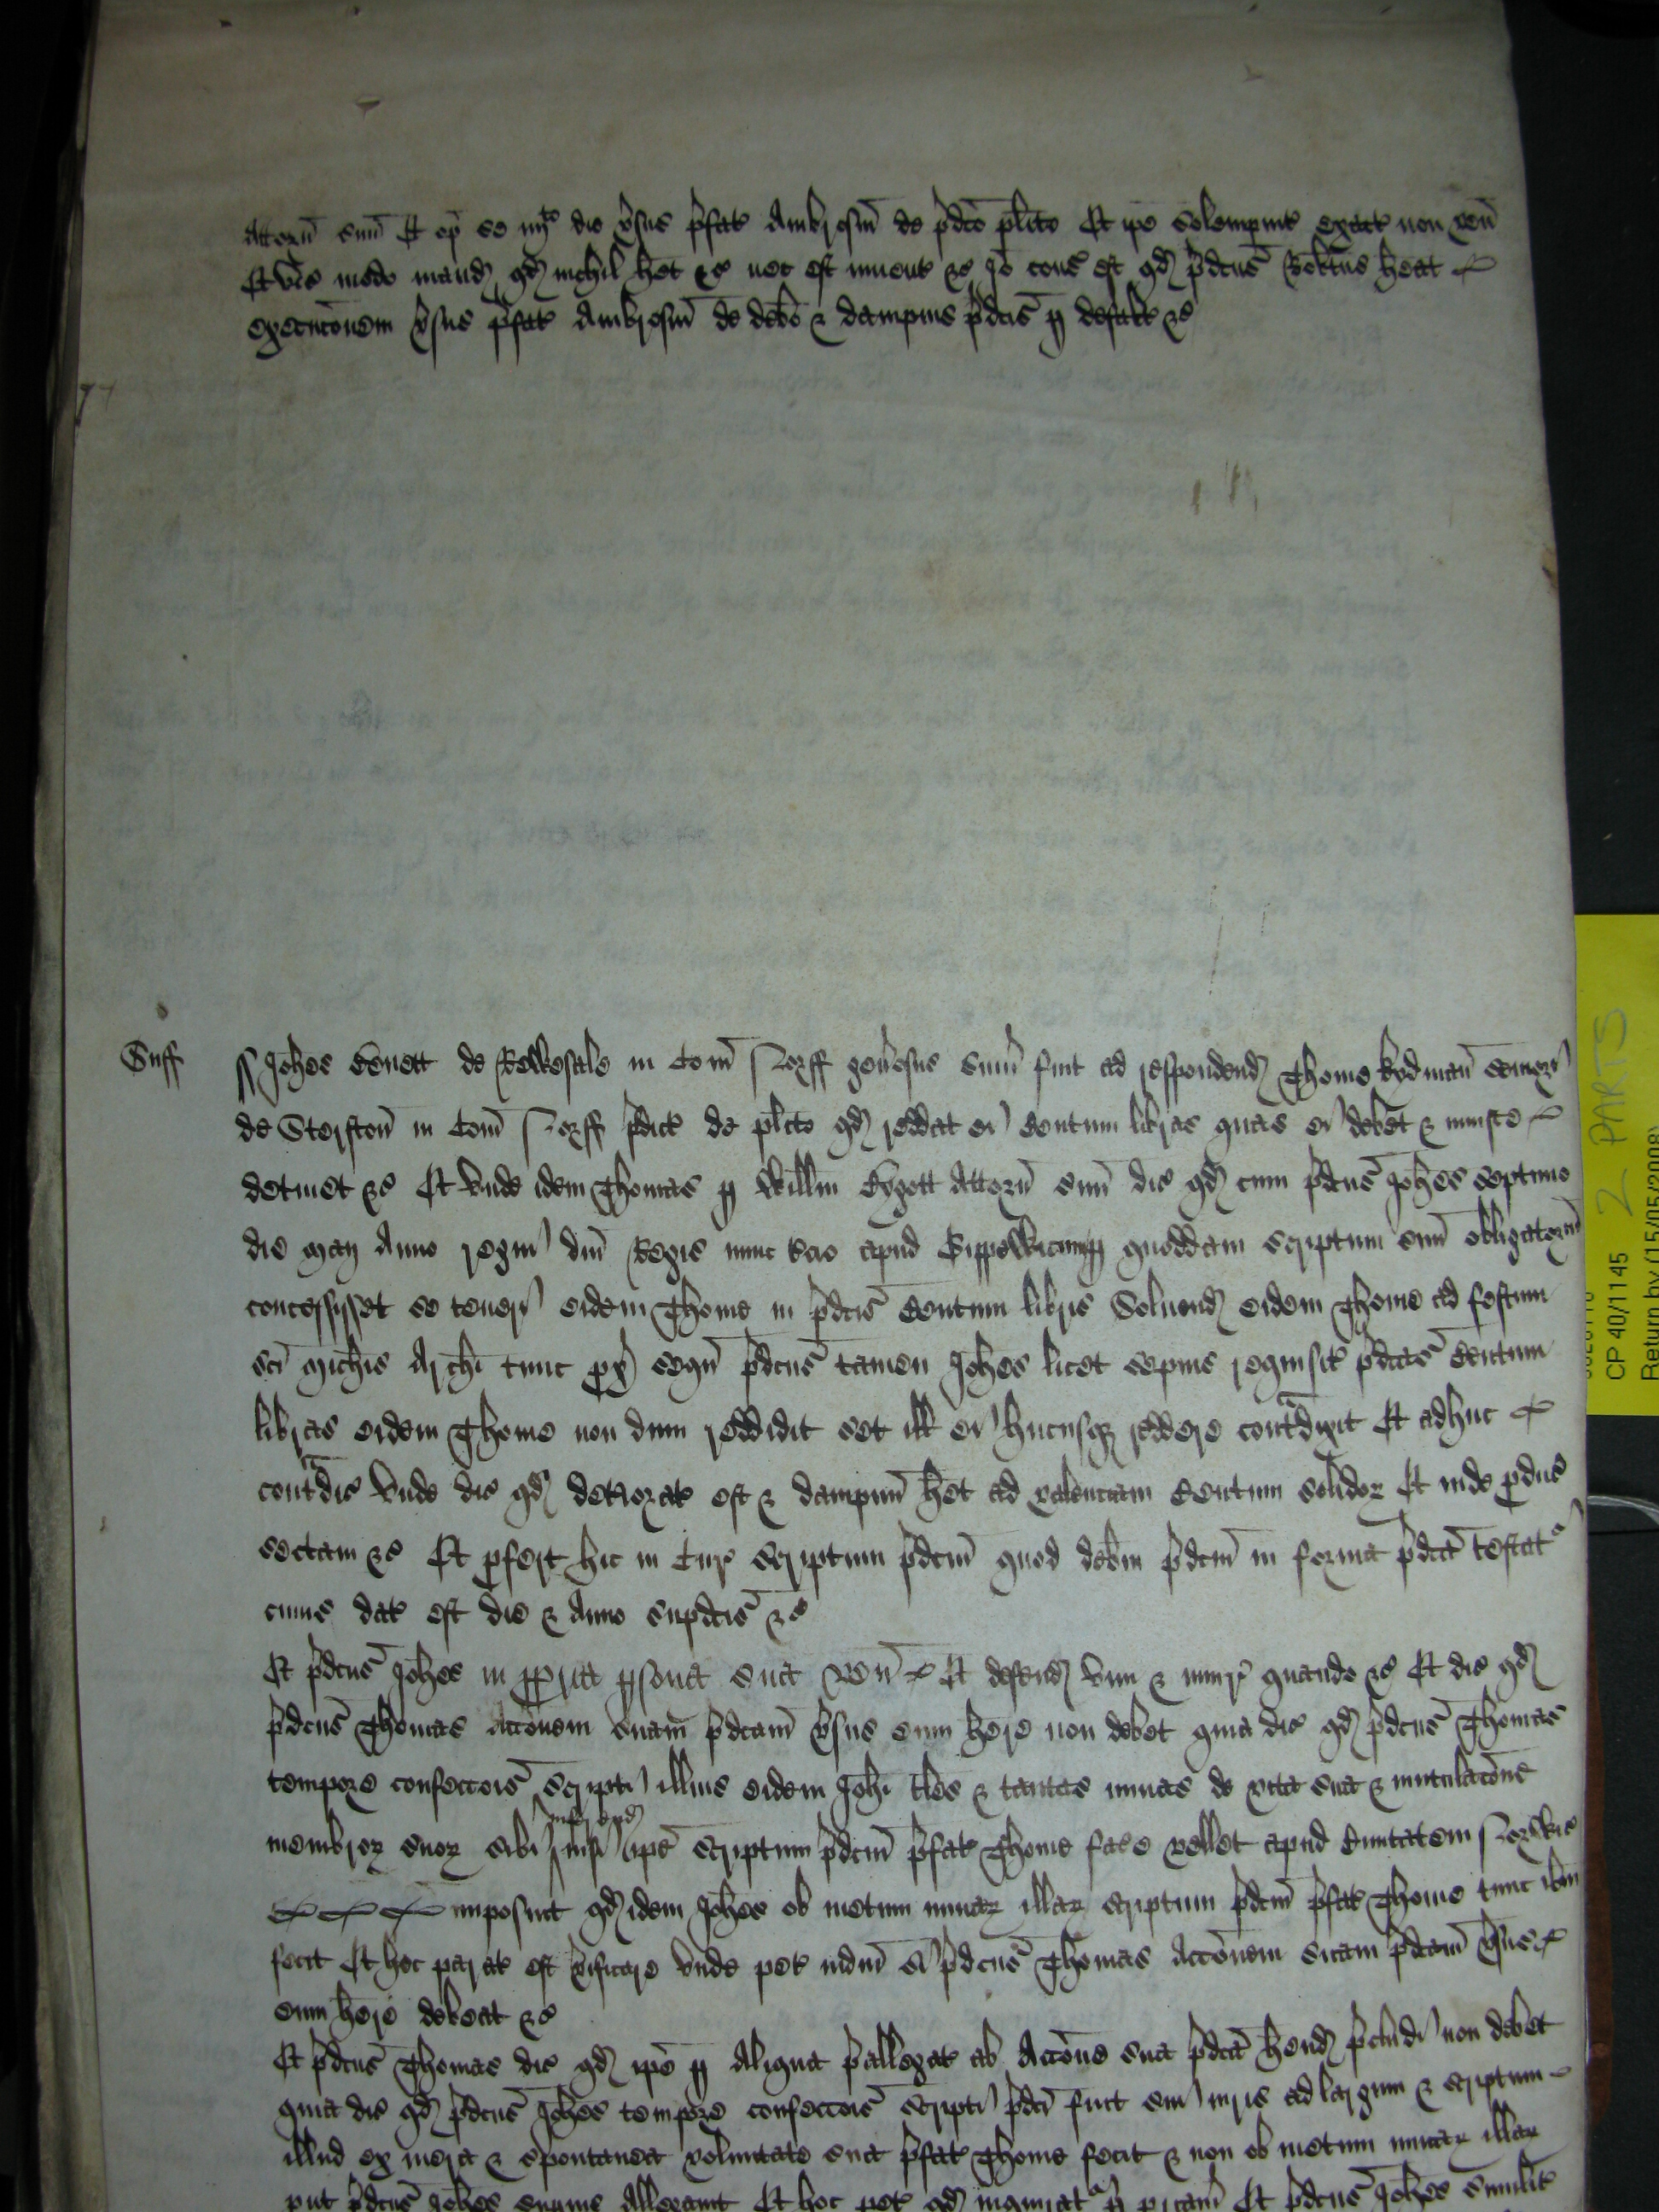 Attorñ suũ Et op̃ se iiijto die ṽsus p̃fat Ambrosiũ de p̃dco plito Et ip̃e solempnit exact non veñ
Et vic̃ modo mand qd nichil h̃et &c nec est invent &c Iõ cons est qd p̃dcus Rob̃tus h̃eat
execucõnem ṽsus p̃fat Ambrosiũ de debõ & dampnis p̃dcis p defalt &c
Suff
Joh̃es Benett de in Com̃ Norff geñosus sum̃ fuit ad respondend Thome Rodman
de Sterston in Com̃ Norff p̃dict de plito qd reddat ei Centum libras quas ei debet & iniuste
detinet &c Et unde idem Thomas p Willm̃ Bygott Attorñ suũ dic̃ qd cum p̃dcus Joh̃es septimo
die Maij Anno regni dñi Regis nunc apud Gippewicum p quoddam scriptum suũ obligatoriũ
concessisset se teneri eidem Thome in p̃dcis Centum libris Solvend eidem Thome ad festum
sc̃i Mich̃is Arch̃i tunc px̃ sequ p̃dcus tamen Joh̃es licet sepius requisit p̃dcas Centum
libras eidem Thome non dum reddidit set ill ei hucusq reddere cont̃dixit Et adhuc
cont̃dic̃ Unde dic̃ qd deteriorat est & dampnũ h̃et ad valenciam Centum solidoz Et inde p̃duc̃
sectam &c Et p̃fert hic in Cur scriptum p̃dcm̃ quod debm̃ p̃dcm̃ in forma p̃dca testat
cuius dat est die & Anno sup̃dcis &c
Et p̃dcus Joh̃es in ppria psona sua veñ Et defend vim & iniur quando &c Et dic̃ qd
p̃dcus Thomas Accõnem suam p̃dcam ṽsus eum h̃ere non debet quia dic̃ qd p̃dcus Thomas
tempore confeccõis scripti illius eidem Joh̃i tales & tantas minas de vita sua & mutilacõne
membroz suoz sibi inferend nisi ip̃e scriptum p̃dcm̃ p̃fat Thome fac̃e vellet apud Civitatem Norwic̃
imposuit qd idem Joh̃es ob metum minaz illaz scriptum p̃dcm̃ p̃fat Thome tunc ib̃m
fecit Et hoc parat est ṽificare Unde pet iudm̃ si p̃dcus Thomas Accõnem suam p̃dcam ṽsus
eum h̃ere debeat &c
Et p̃dcus Thomas dic̃ qd ip̃e p Aliqua p̃allegat ab Accõne sua p̃dca h̃end p̃cludi non debet
quia dic̃ qd p̃dcus Joh̃es tempore confeccõis scripti p̃dci fuit sui iuris ad largum & scriptum
illud ex mera & spontanea voluntate sua p̃fat Thome fecit & non ob metum minaz illaz
put p̃dcus Joh̃es supius Allegavit Et hoc pet qd inquirat p p̃riam Et p̃dcus Joh̃es similit
2 PARTS
CP 40/1145
Return by (15/05/2008)